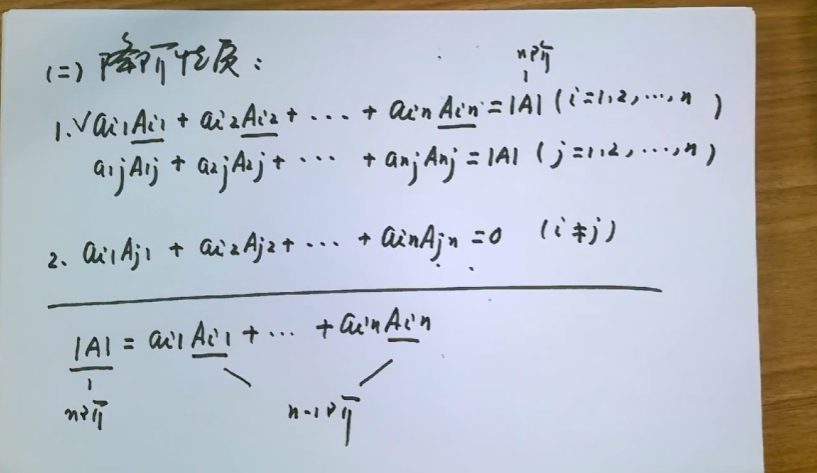 (二) 降阶性质：
n阶
1. √ ai1Ai1 + ai2Ai2 + ··· + ainAin = |A| (i=1,2,···,n)
a1jA1j + a2jA2j + ··· + anjAnj = |A| (j=1,2,···,n)
2. ai1Aj1 + ai2Aj2 + ··· + ainAjn = 0 (i≠j)
|A| = ai1Ai1 + ··· + ainAin
n阶 n-1阶